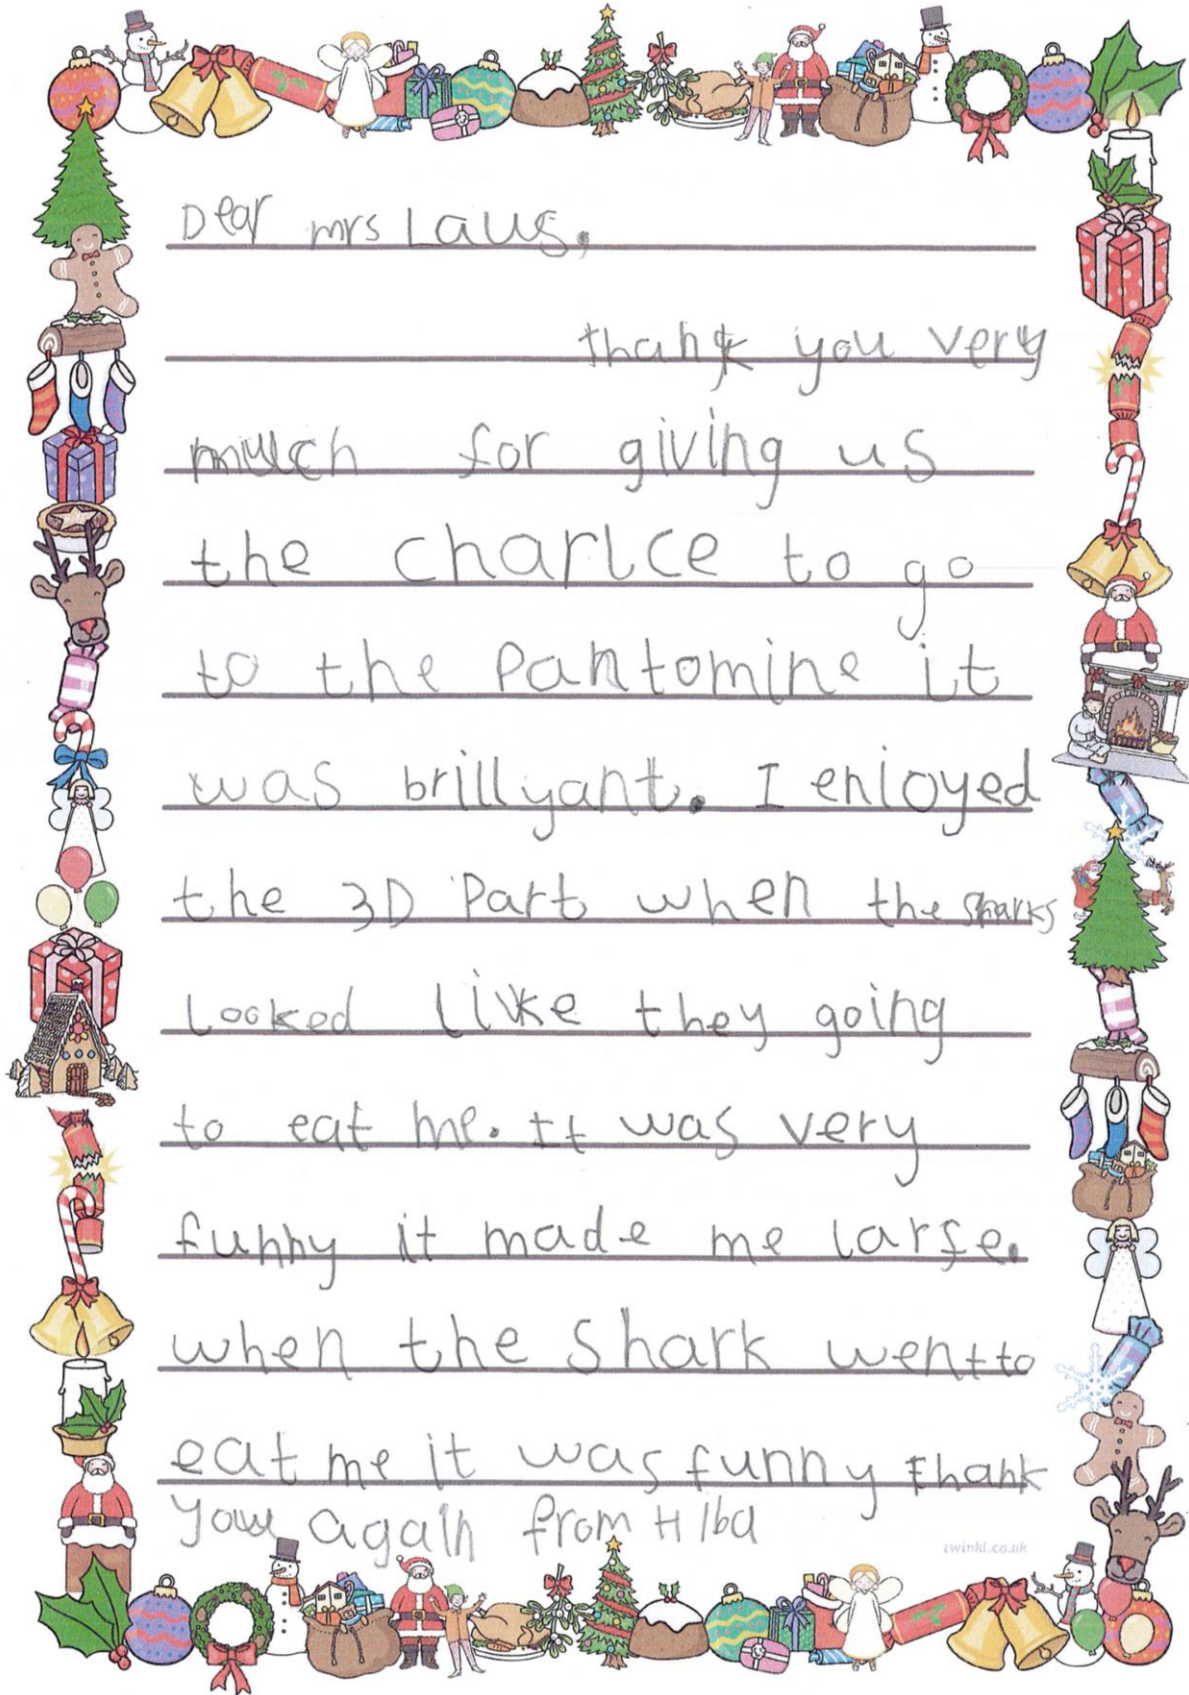 Dear mrs Laws,
thank you very
much for giving us
the charlce to go
to the Pantomine it
was brillyant. I enioyed
the 3D Part when the sharks
Looked Like they going
to eat me. It was very
funny it made me larfe.
when the shark went to
eat me it was funny thank
you again from Hiba
twinkl.co.uk